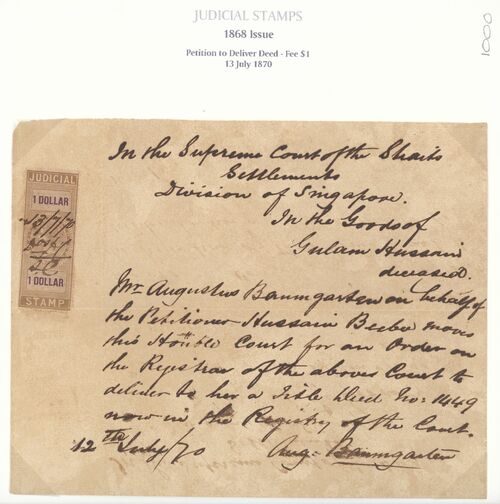 JUDICIAL STAMPS
1868 Issue
Petition to Deliver Deed - Fee $1
13 July 1870
1000
In the Supreme Court of the Straits
Settlements
Division of Singapore.
In the Goods of
Gulam Hussain
deceased.
JUDICIAL
1 DOLLAR
13/7/70
1 DOLLAR
STAMP
Mr. Augustus Baumgarten on behalf of
the Petitioner Hussain Beebee moves
this Honble Court for an Order on
the Registrar of the aboves Court to
deliver to her a Title Deed No: 1449
now in the Registry of the Court.
12th July/70
Aug- Baumgarten